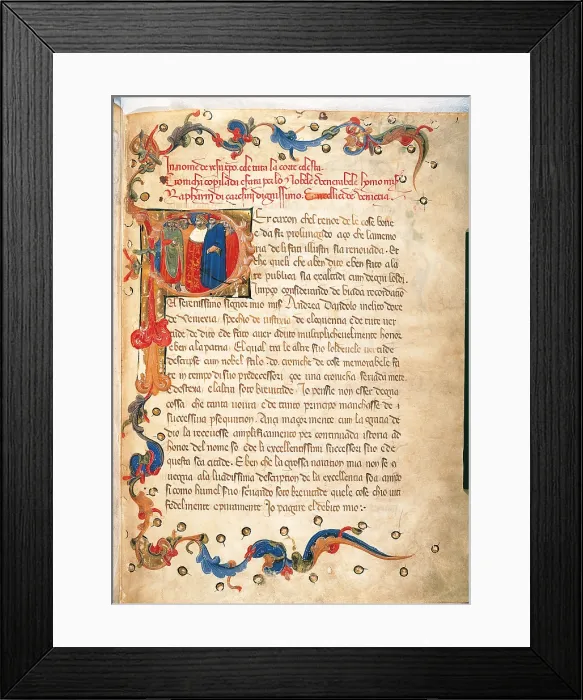 In nome de yesu xpo. e de tuta la corte celesta.
Cronicha copilada e fata per lo Nobele e venerabele homo mis
Raphain di caresini dignissimo. Cancellier de veniexia.
Per caxon chel tenor de le cose bone
e da fir prolungado aço che la memo
ria de li fati illustri sia renouada. Et
che queli che aben dito e ben fato a la
re publica sia exaltadi cum degni
Impço considerando de biada recordatio
el serenissimo signor mio mis Andrea Dandolo inclito doxe
de Veniexia spechio de iusticia de eloquentia e de tute ver
tude de dito e de fato auer aduto multiplicheuelmente honor
e ben a la patria. El qual tra le altre suo
descripse cum nobel stilo do croniche de cose memorabele fa
te in tempo di suo predecessori çoe una cronicha
e destexa e laltra soto breuitade. Io pensie non esser degna
cossa che tanta e de tanto principo manchasse de
successiua Anci magormente cum la gratia de
dio la receuesse amplificamento per continuada istoria ad
honor del nome so e de li excellentissimi successori suo e de
questa soa citade. E ben che la grossa naration mia non se
a la lucidissima description de la excellentia soa
si como humel suo seruando soto breuitade quele cose
fedelmente e puramente Io pagire el debito mio:-